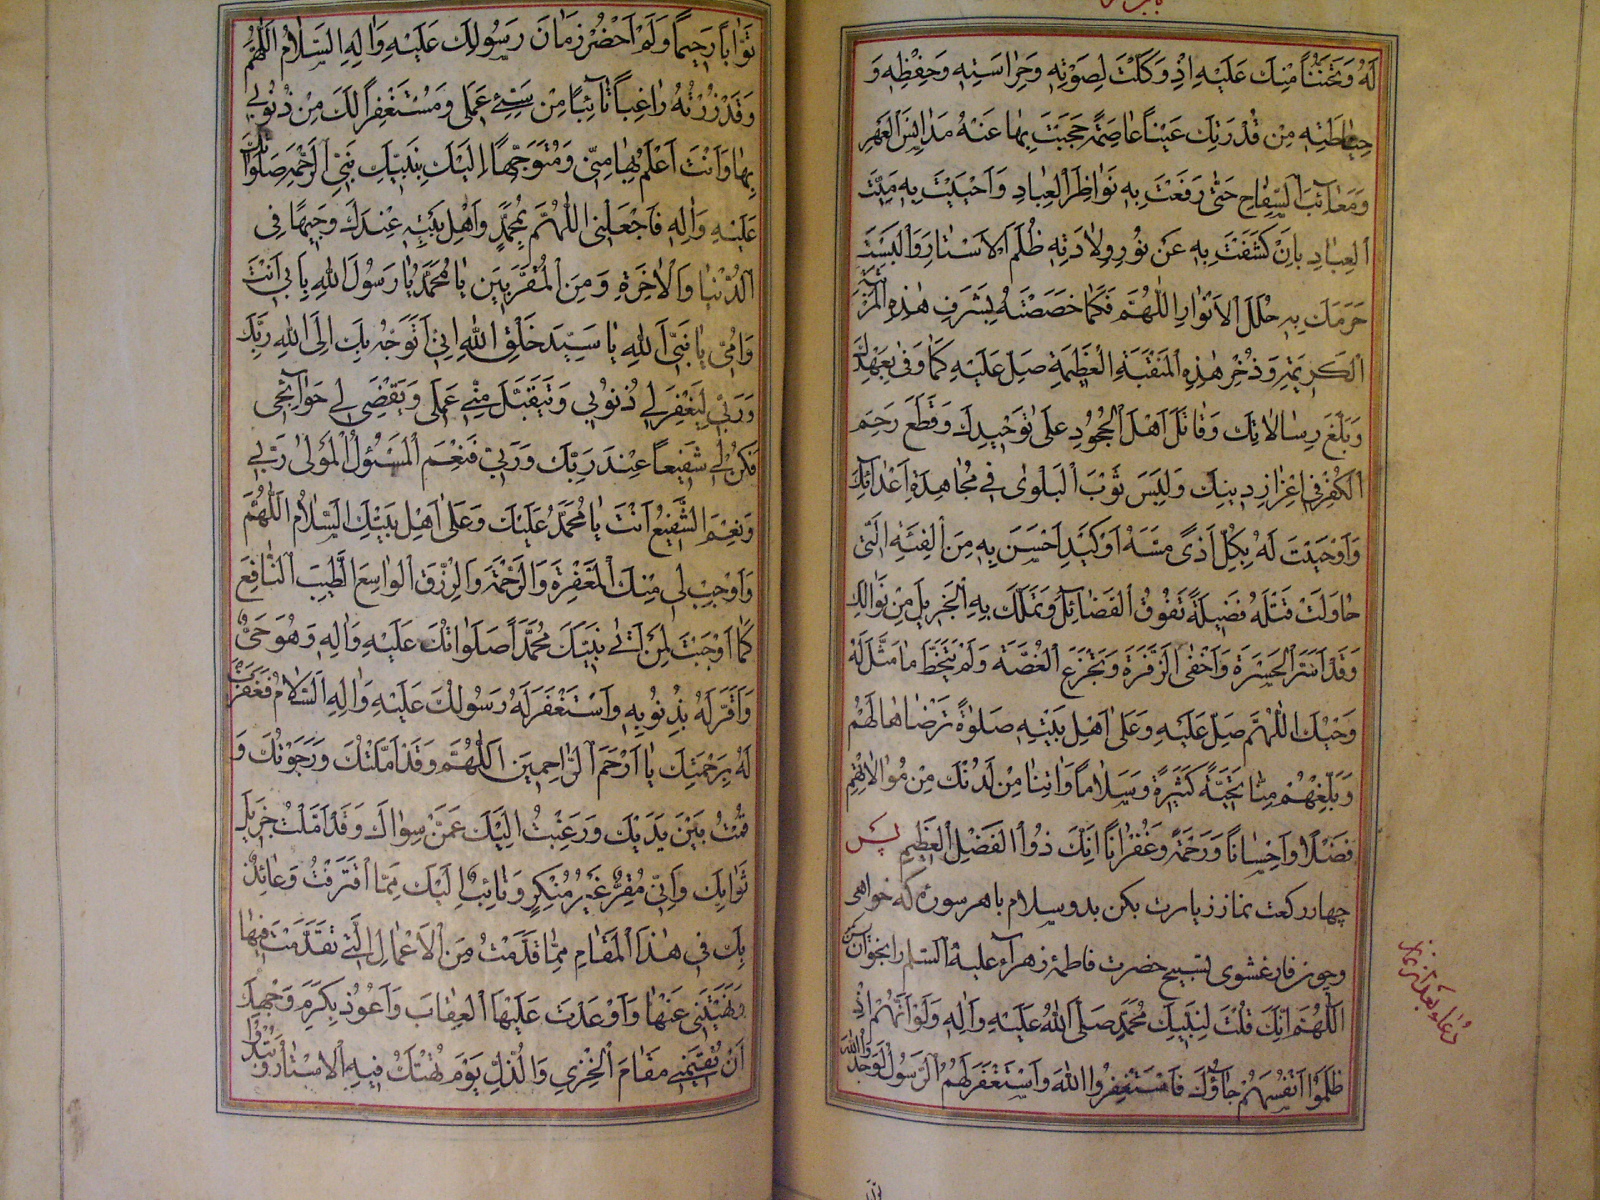 لَهُ وَتَحَنُّنًا مِنْكَ عَلَيْهِ اِذْ وَكَّلْتَ لِصَوْنِهِ وَحِرَاسَتِهِ وَحِفْظِهِ وَ
حِيَاطَتِهِ مِنْ قُدْرَتِكَ عَيْنًا عَاصِمَةً حَجَبْتَ بِهَا عَنْهُ مَدَانِسَ الْعَهْرِ
وَمَعَائِبَ السِّفَاحِ حَتَّى رَفَعْتَ بِهِ نَوَاظِرَ الْعِبَادِ وَاَحْيَيْتَ بِهِ مَيْتَ
الْعِبَادِ بِاَنْ كَشَفْتَ بِهِ عَنْ نُورِ وِلَادَتِهِ ظُلَمَ الْاَسْتَارِ وَاَلْبَسْتَ
حَرَمَكَ بِهِ حُلَلَ الْاَنْوَارِ اللّٰهُمَّ فَكَمَا خَصَصْتَهُ بِشَرَفِ هٰذِهِ الْمَرْتَبَةِ
الْكَرِيمَةِ وَذُخْرِ هٰذِهِ الْمَنْقَبَةِ الْعَظِيمَةِ صَلِّ عَلَيْهِ كَمَا وَفَى بِعَهْدِكَ
وَبَلَّغَ رِسَالَاتِكَ وَقَاتَلَ اَهْلَ الْجُحُودِ عَلَى تَوْحِيدِكَ وَقَطَعَ رَحِمَ
الْكُفْرِ فِي اِعْزَازِ دِينِكَ وَلَبِسَ ثَوْبَ الْبَلْوٰى فِي مُجَاهَدَةِ اَعْدَائِكَ
وَاَوْجَبْتَ لَهُ بِكُلِّ اَذًى مَسَّهُ اَوْ كَيْدٍ اَحَسَّ بِهِ مِنَ الْفِئَةِ الَّتِي
حَاوَلَتْ قَتْلَهُ فَضِيلَةً تَفُوقُ الْفَضَائِلَ وَيَمْلِكُ بِهَا الْجَزِيلَ مِنْ نَوَالِكَ
وَقَدْ اَسَرَّ الْحَسْرَةَ وَاَخْفَى الزَّفْرَةَ وَتَجَرَّعَ الْغُصَّةَ وَلَمْ يَتَخَطَّ مَا مَثَّلَ لَهُ
وَحْيُكَ اللّٰهُمَّ صَلِّ عَلَيْهِ وَعَلَى اَهْلِ بَيْتِهِ صَلٰوةً تَرْضَاهَا لَهُمْ
وَبَلِّغْهُمْ مِنَّا تَحِيَّةً كَثِيرَةً وَسَلَامًا وَاٰتِنَا مِنْ لَدُنْكَ مِنْ مُوَالَاتِهِمْ
فَضْلًا وَاِحْسَانًا وَرَحْمَةً وَغُفْرَانًا اِنَّكَ ذُو الْفَضْلِ الْعَظِيمِ پس
چهار رکعت نماز زیارت بکن بدو سلام با هر سوره که خواهی
وچون فارغ شوی تسبیح حضرت فاطمهٔ زهرآء علیها السلم را بخوان
اَللّٰهُمَّ اِنَّكَ قُلْتَ لِنَبِيِّكَ مُحَمَّدٍ صَلَّى اللّٰهُ عَلَيْهِ وَاٰلِهِ وَلَوْ اَنَّهُمْ اِذْ
ظَلَمُوا اَنْفُسَهُمْ جَاؤُكَ فَاسْتَغْفَرُوا اللّٰهَ وَاسْتَغْفَرَ لَهُمُ الرَّسُولُ لَوَجَدُوا اللّٰهَ
دعاء بعد از نماز
تَوَّابًا رَحِيمًا وَلَمْ اَحْضُرْ زَمَانَ رَسُولِكَ عَلَيْهِ وَاٰلِهِ السَّلَامُ اَللّٰهُمَّ
وَقَدْ زُرْتُهُ رَاغِبًا تَائِبًا مِنْ سَيِّئِ عَمَلِي وَمُسْتَغْفِرًا لَكَ مِنْ ذُنُوبِي
بِهَا وَاَنْتَ اَعْلَمُ بِهَا مِنِّي وَمُتَوَجِّهًا اِلَيْكَ بِنَبِيِّكَ نَبِيِّ الرَّحْمَةِ صَلَوَاتُكَ
عَلَيْهِ وَاٰلِهِ فَاجْعَلْنِي اللّٰهُمَّ بِمُحَمَّدٍ وَاَهْلِ بَيْتِهِ عِنْدَكَ وَجِيهًا فِي
الدُّنْيَا وَالْاٰخِرَةِ وَمِنَ الْمُقَرَّبِينَ يَا مُحَمَّدُ يَا رَسُولَ اللّٰهِ بِاَبِي اَنْتَ
وَاُمِّي يَا نَبِيَّ اللّٰهِ يَا سَيِّدَ خَلْقِ اللّٰهِ اِنِّي اَتَوَجَّهُ بِكَ اِلَى اللّٰهِ رَبِّكَ
وَرَبِّي لِيَغْفِرَ لِي ذُنُوبِي وَيَتَقَبَّلَ مِنِّي عَمَلِي وَيَقْضِيَ لِي حَوَائِجِي
فَكُنْ لِي شَفِيعًا عِنْدَ رَبِّكَ وَرَبِّي فَنِعْمَ الْمَسْئُولُ الْمَوْلٰى رَبِّي
وَنِعْمَ الشَّفِيعُ اَنْتَ يَا مُحَمَّدُ عَلَيْكَ وَعَلَى اَهْلِ بَيْتِكَ السَّلَامُ اَللّٰهُمَّ
وَاَوْجِبْ لِي مِنْكَ الْمَغْفِرَةَ وَالرَّحْمَةَ وَالرِّزْقَ الْوَاسِعَ الطَّيِّبَ النَّافِعَ
كَمَا اَوْجَبْتَ لِمَنْ اَتٰى نَبِيَّكَ مُحَمَّدًا صَلَوَاتُكَ عَلَيْهِ وَاٰلِهِ وَهُوَ حَيٌّ
وَاَقَرَّ لَهُ بِذُنُوبِهِ وَاسْتَغْفَرَ لَهُ رَسُولُكَ عَلَيْهِ وَاٰلِهِ السَّلَامُ فَغَفَرْتَ
لَهُ بِرَحْمَتِكَ يَا اَرْحَمَ الرَّاحِمِينَ اَللّٰهُمَّ وَقَدْ اَمَّلْتُكَ وَرَجَوْتُكَ وَ
قُمْتُ بَيْنَ يَدَيْكَ وَرَغِبْتُ اِلَيْكَ عَمَّنْ سِوَاكَ وَقَدْ اَمَّلْتُ جَزِيلَ
ثَوَابِكَ وَاِنِّي مُقِرٌّ غَيْرُ مُنْكِرٍ وَتَائِبٌ اِلَيْكَ مِمَّا اقْتَرَفْتُ وَعَائِذٌ
بِكَ فِي هٰذَا الْمَقَامِ مِمَّا قَدَّمْتُ مِنَ الْاَعْمَالِ الَّتِي تَقَدَّمْتَ فِيهَا
وَنَهَيْتَنِي عَنْهَا وَاَوْعَدْتَ عَلَيْهَا الْعِقَابَ وَاَعُوذُ بِكَرَمِ وَجْهِكَ
اَنْ تُقِيمَنِي مَقَامَ الْخِزْيِ وَالذُّلِّ يَوْمَ تُهْتَكُ فِيهِ الْاَسْتَارُ وَتَبْدُو